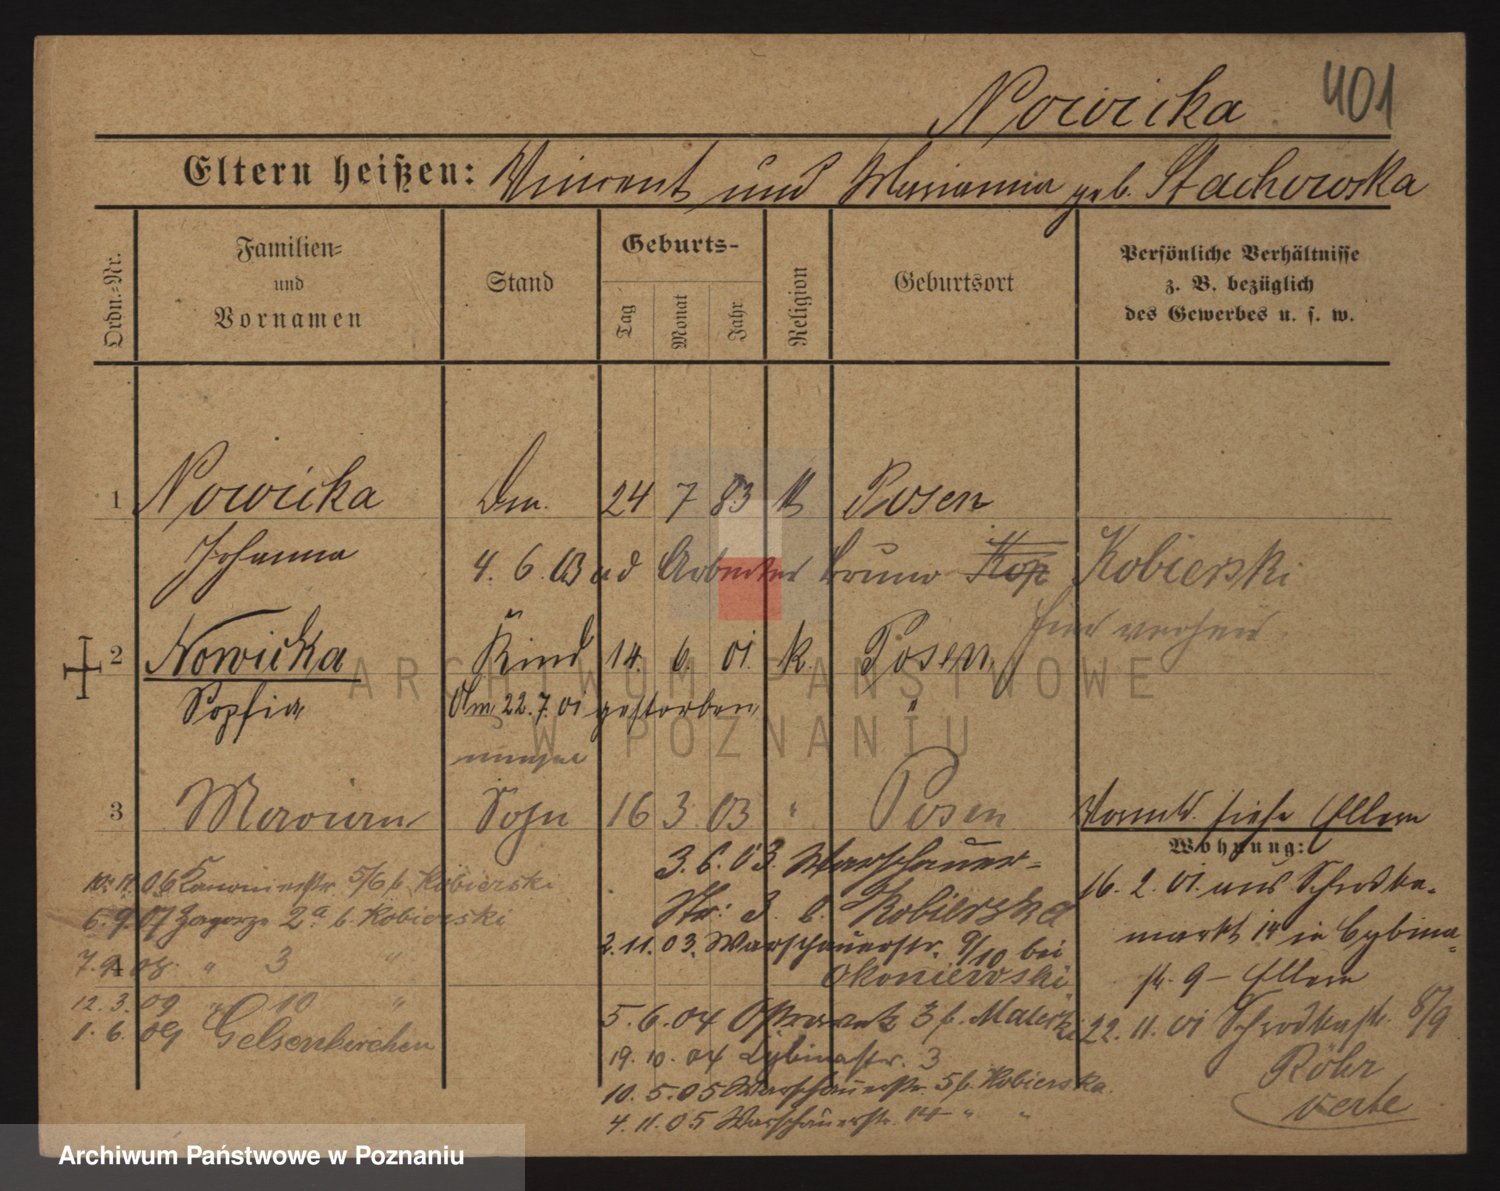 Nowicka 401
Eltern heißen: Vincent und Marianna geb. Stachowska
Ordn.=Nr.
Familien= und Vornamen
Stand
Geburts-
Tag
Monat
Jahr
Religion
Geburtsort
Persönliche Verhältnisse
z. B. bezüglich
des Gewerbes u. s. w.
1 Nowicka 24 7 83 k Posen
Johanna 4. 6. 03 ad Arbeiter Bruno Kop Kobierski
hier verheir
2 Nowicka Kind 14. 6. 01. k. Posen
Sophia Am 22. 7. 01 gestorben
3 Marian Sohn 16 3 03 " Posen
Vormd. siehe Eltern
Wohnung:
16. 2. 01. aus Schrodka-
markt 14 in Cybina-
str. 9 - Eltern
22. 11. 01 Schrodkastr. 8/9
Röhr
verte
3. 6. 03. Warschauer-
Str: 3 b. Kobierska
2. 11. 03. Warschauerstr. 9/10 bei
Okoniewski
5. 6. 04 Ostrowek 3 b.
19. 10. 04 Cybinastr. 3
10. 5. 05 Warschauerstr. 5 b. Kobierska
4. 11. 05 Warschauerstr. " "
06 5/6 b Kobierski
6. 9. 07 Zagorze 2a b Kobierski
7. 9. 08. " 3 "
4
12. 3. 09 " 10 "
1. 6. 09 Gelsenkirchen
ARCHIWUM PAŃSTWOWE
W POZNANIU
Archiwum Państwowe w Poznaniu